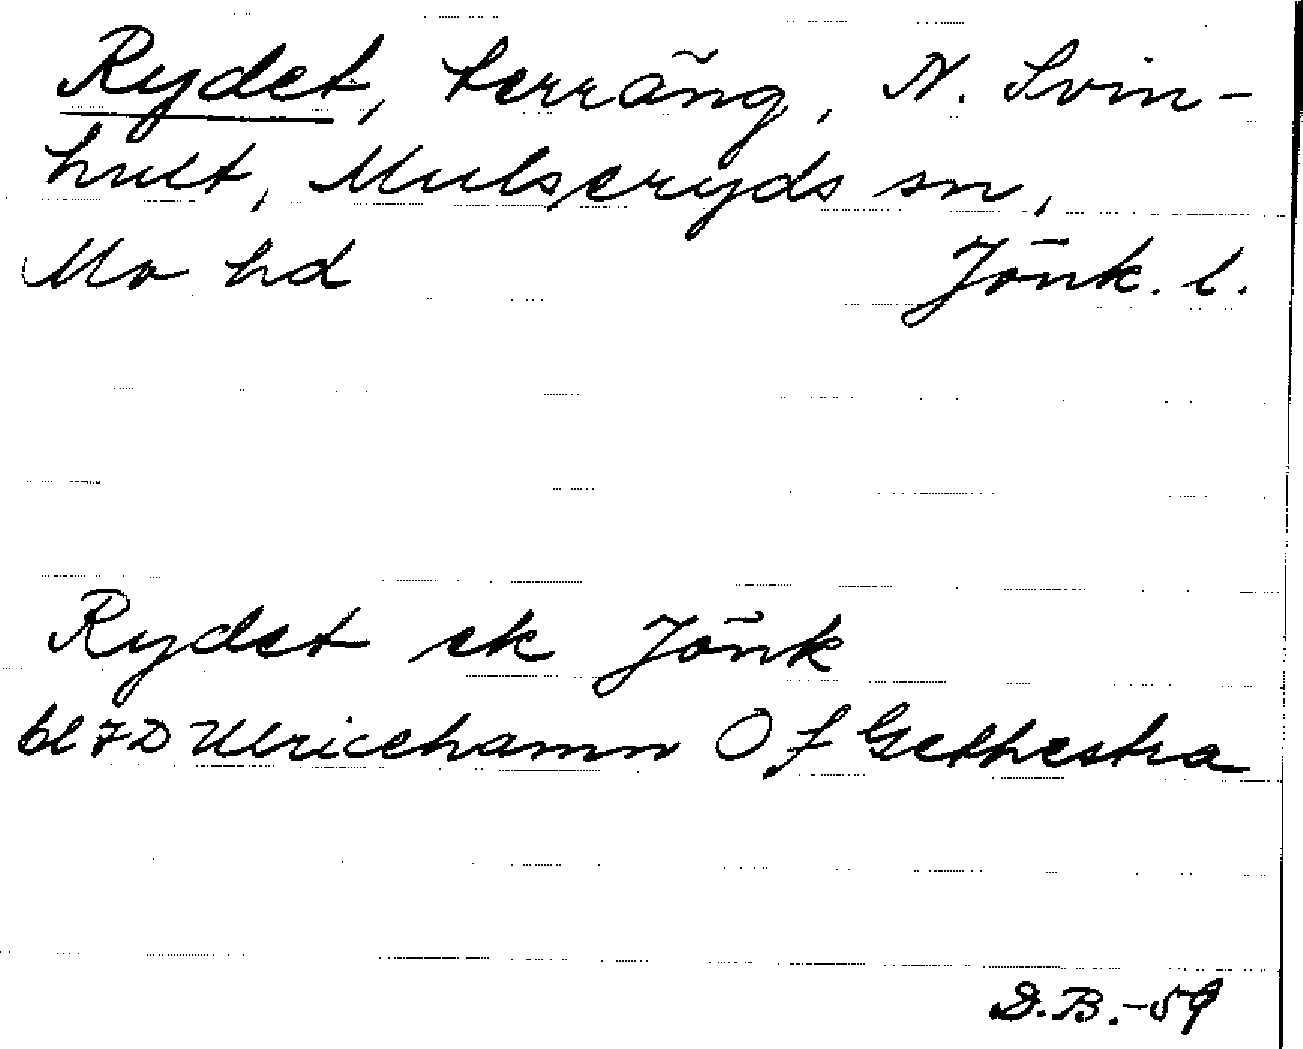 Rydet, terräng, N. Svin-
hult, Mulseryds sn,
Mo hd Jönk. l.
Rydet ek Jönk
bl 7D Ulricehamn Ö f Gethestra
D.B.-59